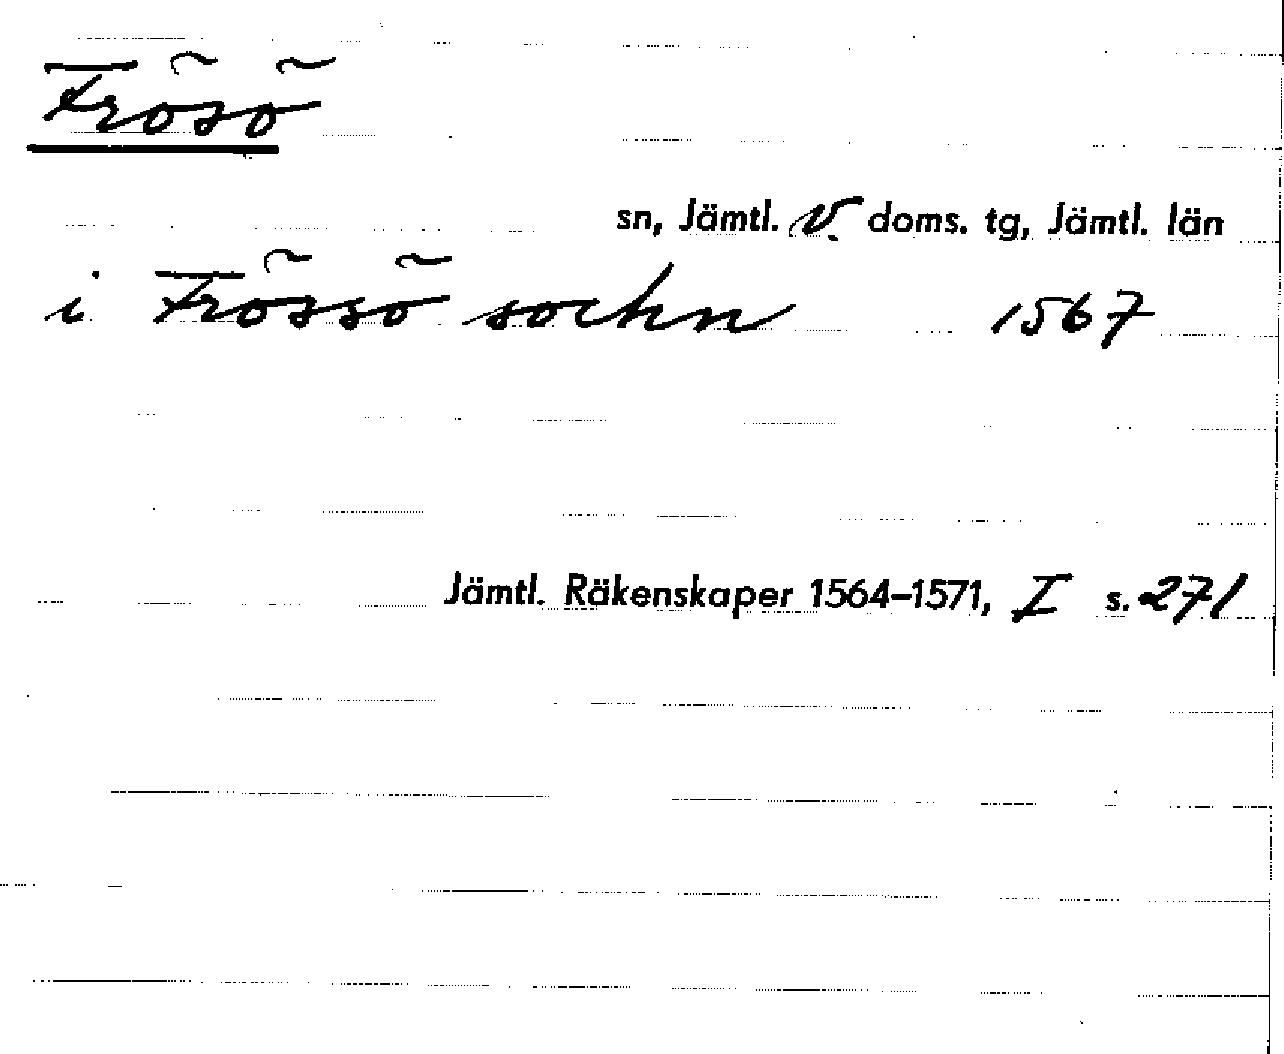 Frösö
sn, Jämtl. v. doms. tg, Jämtl. län
i Frössö sochn 1567
Jämtl. Räkenskaper 1564–1571, I s. 271